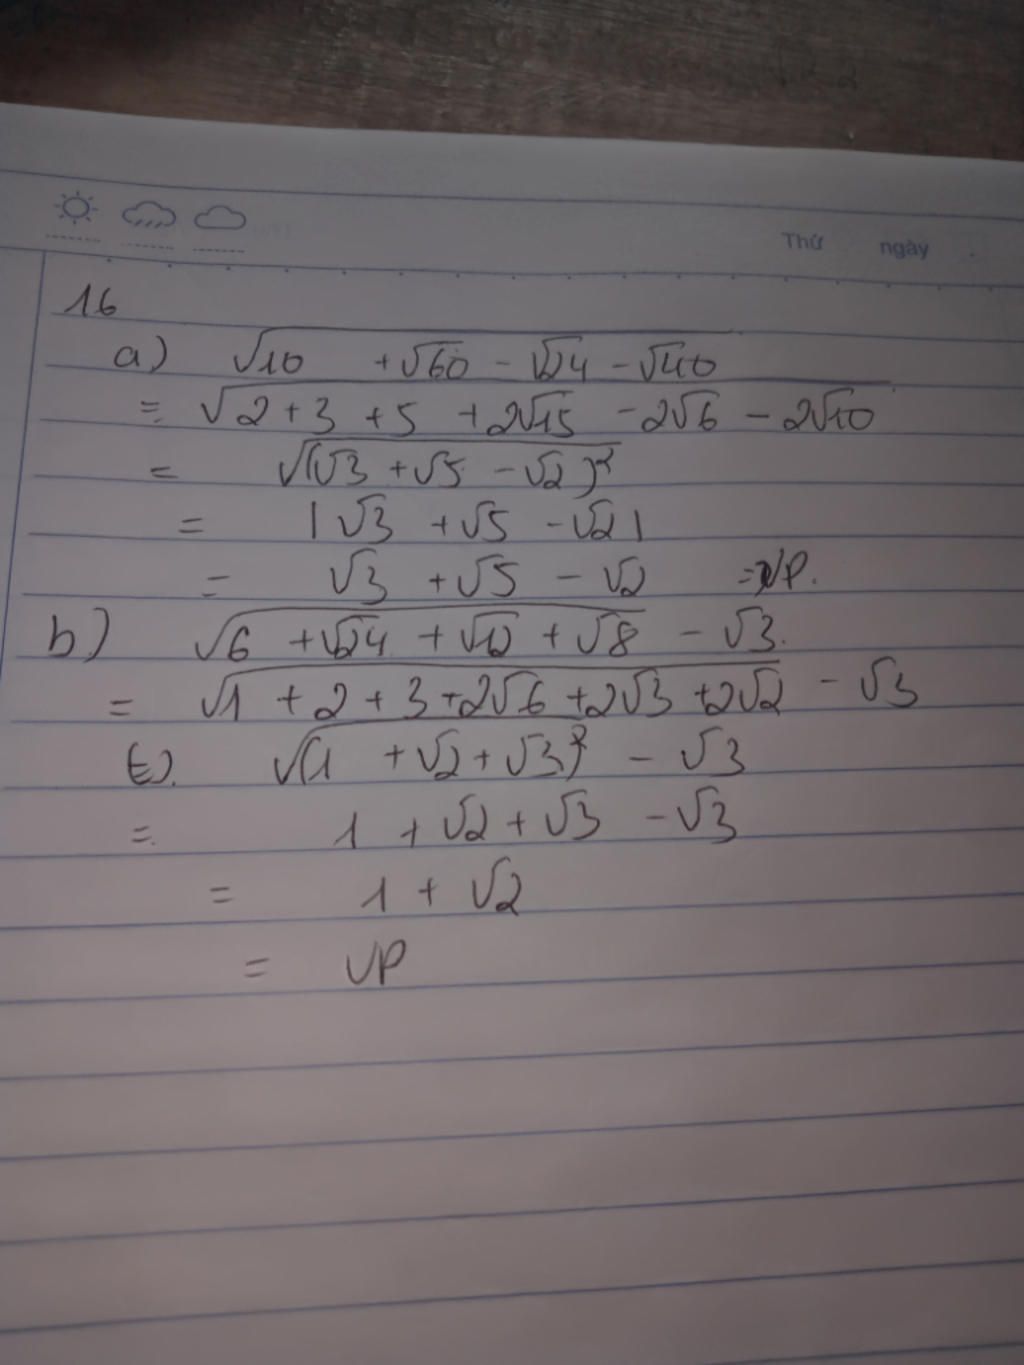 Thứ ngày
16
a) √(10 + √60 - √24 - √40)
= √(2 + 3 + 5 + 2√15 - 2√6 - 2√10)
= √((√3 + √5 - √2)²)
= |√3 + √5 - √2|
= √3 + √5 - √2 = VP.
b) √(6 + √24 + √12 + √8) - √3.
= √(1 + 2 + 3 + 2√6 + 2√3 + 2√2) - √3
√((1 + √2 + √3)²) - √3
= 1 + √2 + √3 - √3
= 1 + √2
= VP